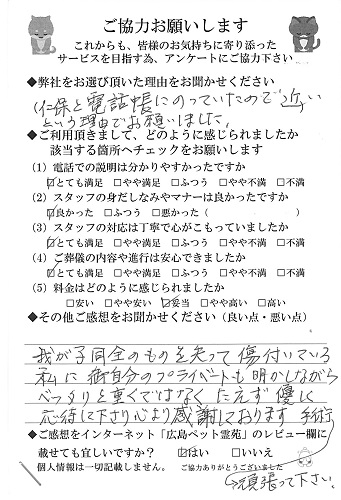 ご協力お願いします
これからも、皆様のお気持ちに寄り添った
サービスを目指す為、アンケートにご協力下さい
◆弊社をお選び頂いた理由をお聞かせください
仁保と電話帳にのっていたので近い
という理由でお願いしました。
◆ご利用頂きまして、どのように感じられましたか
該当する箇所へチェックをお願いします
(1)電話での説明は分かりやすかったですか
☑とても満足 □やや満足 □ふつう □やや不満 □不満
(2)スタッフの身だしなみやマナーは良かったですか
☑良かった □ふつう □悪かった(
(3)スタッフの対応は丁寧で心がこもっていましたか
☑とても満足 □やや満足 □ふつう □やや不満 □不満
(4)ご葬儀の内容や進行は安心できましたか
☑とても満足 □やや満足 □ふつう □やや不満 □不満
(5)料金はどのように感じられましたか
□安い □やや安い ☑妥当 □やや高い □高い
◆その他ご感想をお聞かせください(良い点・悪い点)
我が子同全のものを失って傷付いている
私に御自分のプライベートも明かしながら
べったりと重くではなくたえず優しく
応待して下さり心より感謝しております
◆ご感想をインターネット「広島ペット霊苑」のレビュー欄に
載せても宜しいですか? ☑はい □いいえ
個人情報は一切記載しません。 ご協力ありがとうございました
頑張って下さい。